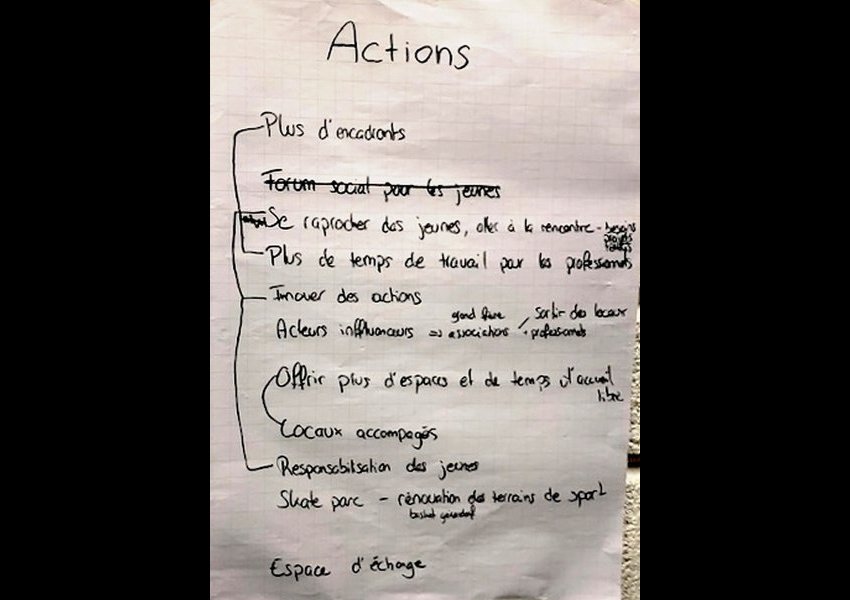 Actions
Plus d'encadrants
Forum social pour les jeunes
Se raprocher des jeunes, aller à la rencontre - besoins
projets
Plus de temps de travail par les professionnels
Innover des actions
grand frère
sortir des locaux
Acteurs inffluenceurs => associations
professionnels
Offrir plus d'espaces et de temps d'accueil
libre
Locaux accompagés
Responsabilisation des jeunes
Skate parc - rénovation des terrains de sport
basket
Espace d'échange